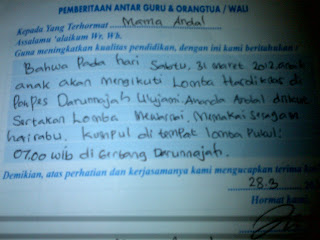 PEMBERITAAN ANTAR GURU & ORANGTUA / WALI
Kepada Yang Terhormat Mama Andal
Assalamu 'alaikum Wr. Wb.
Guna meningkatkan kualitas pendidikan, dengan ini kami beritahukan :
Bahwa Pada hari Sabtu, 31 Maret 2012, anak
anak akan mengikuti Lomba Hardiknas di
PonPes Darunnajah Ulujami Ananda Andal diikut
Sertakan Lomba Mewarnai, Memakai seragam
hari rabu. Kumpul di tempat lomba Pukul:
07.00 wib di Gerbang Darunnajah.
Demikian, atas perhatian dan kerjasamanya kami mengucapkan terima
28.3
Hormat kami